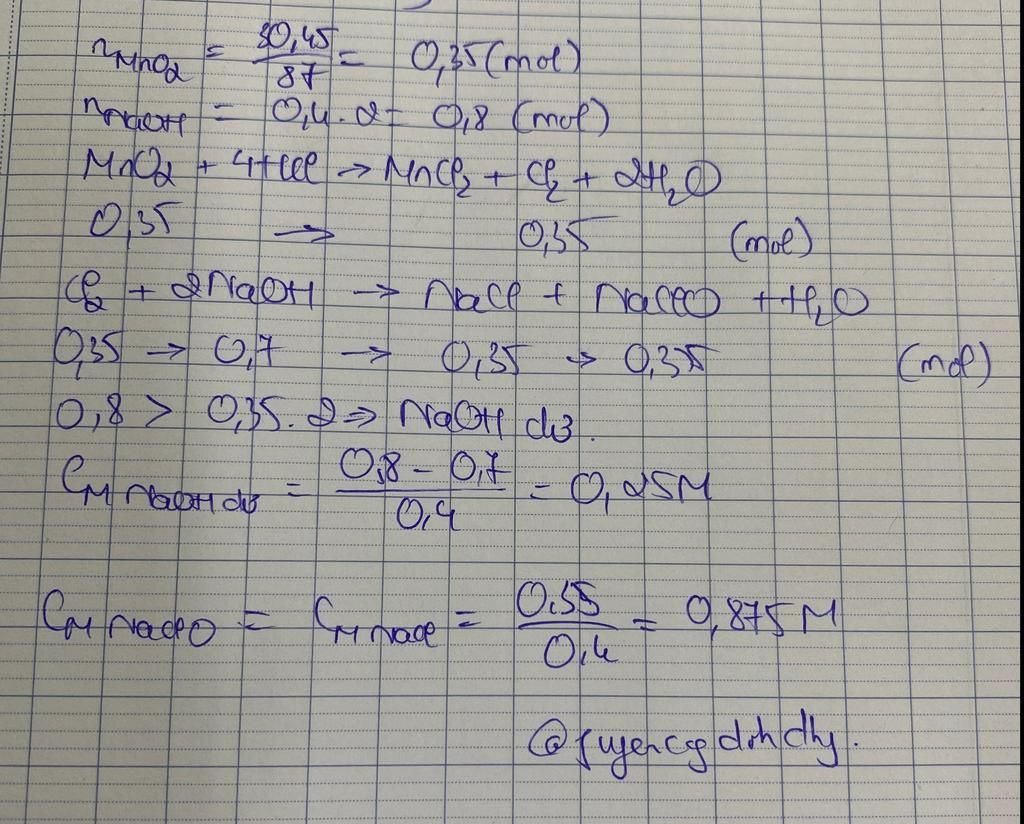 nMnO2 = 30,45/87 = 0,35 (mol)
nNaOH = 0,4 . 2 = 0,8 (mol)
MnO2 + 4HCl → MnCl2 + Cl2 + 2H2O
0,35 → 0,35 (mol)
Cl2 + 2NaOH → NaCl + NaClO + H2O
0,35 → 0,7 → 0,35 → 0,35 (mol)
0,8 > 0,35 . 2 => NaOH dư.
CM NaOH dư = (0,8 - 0,7)/0,4 = 0,25M
CM NaClO = CM NaCl = 0,35/0,4 = 0,875 M